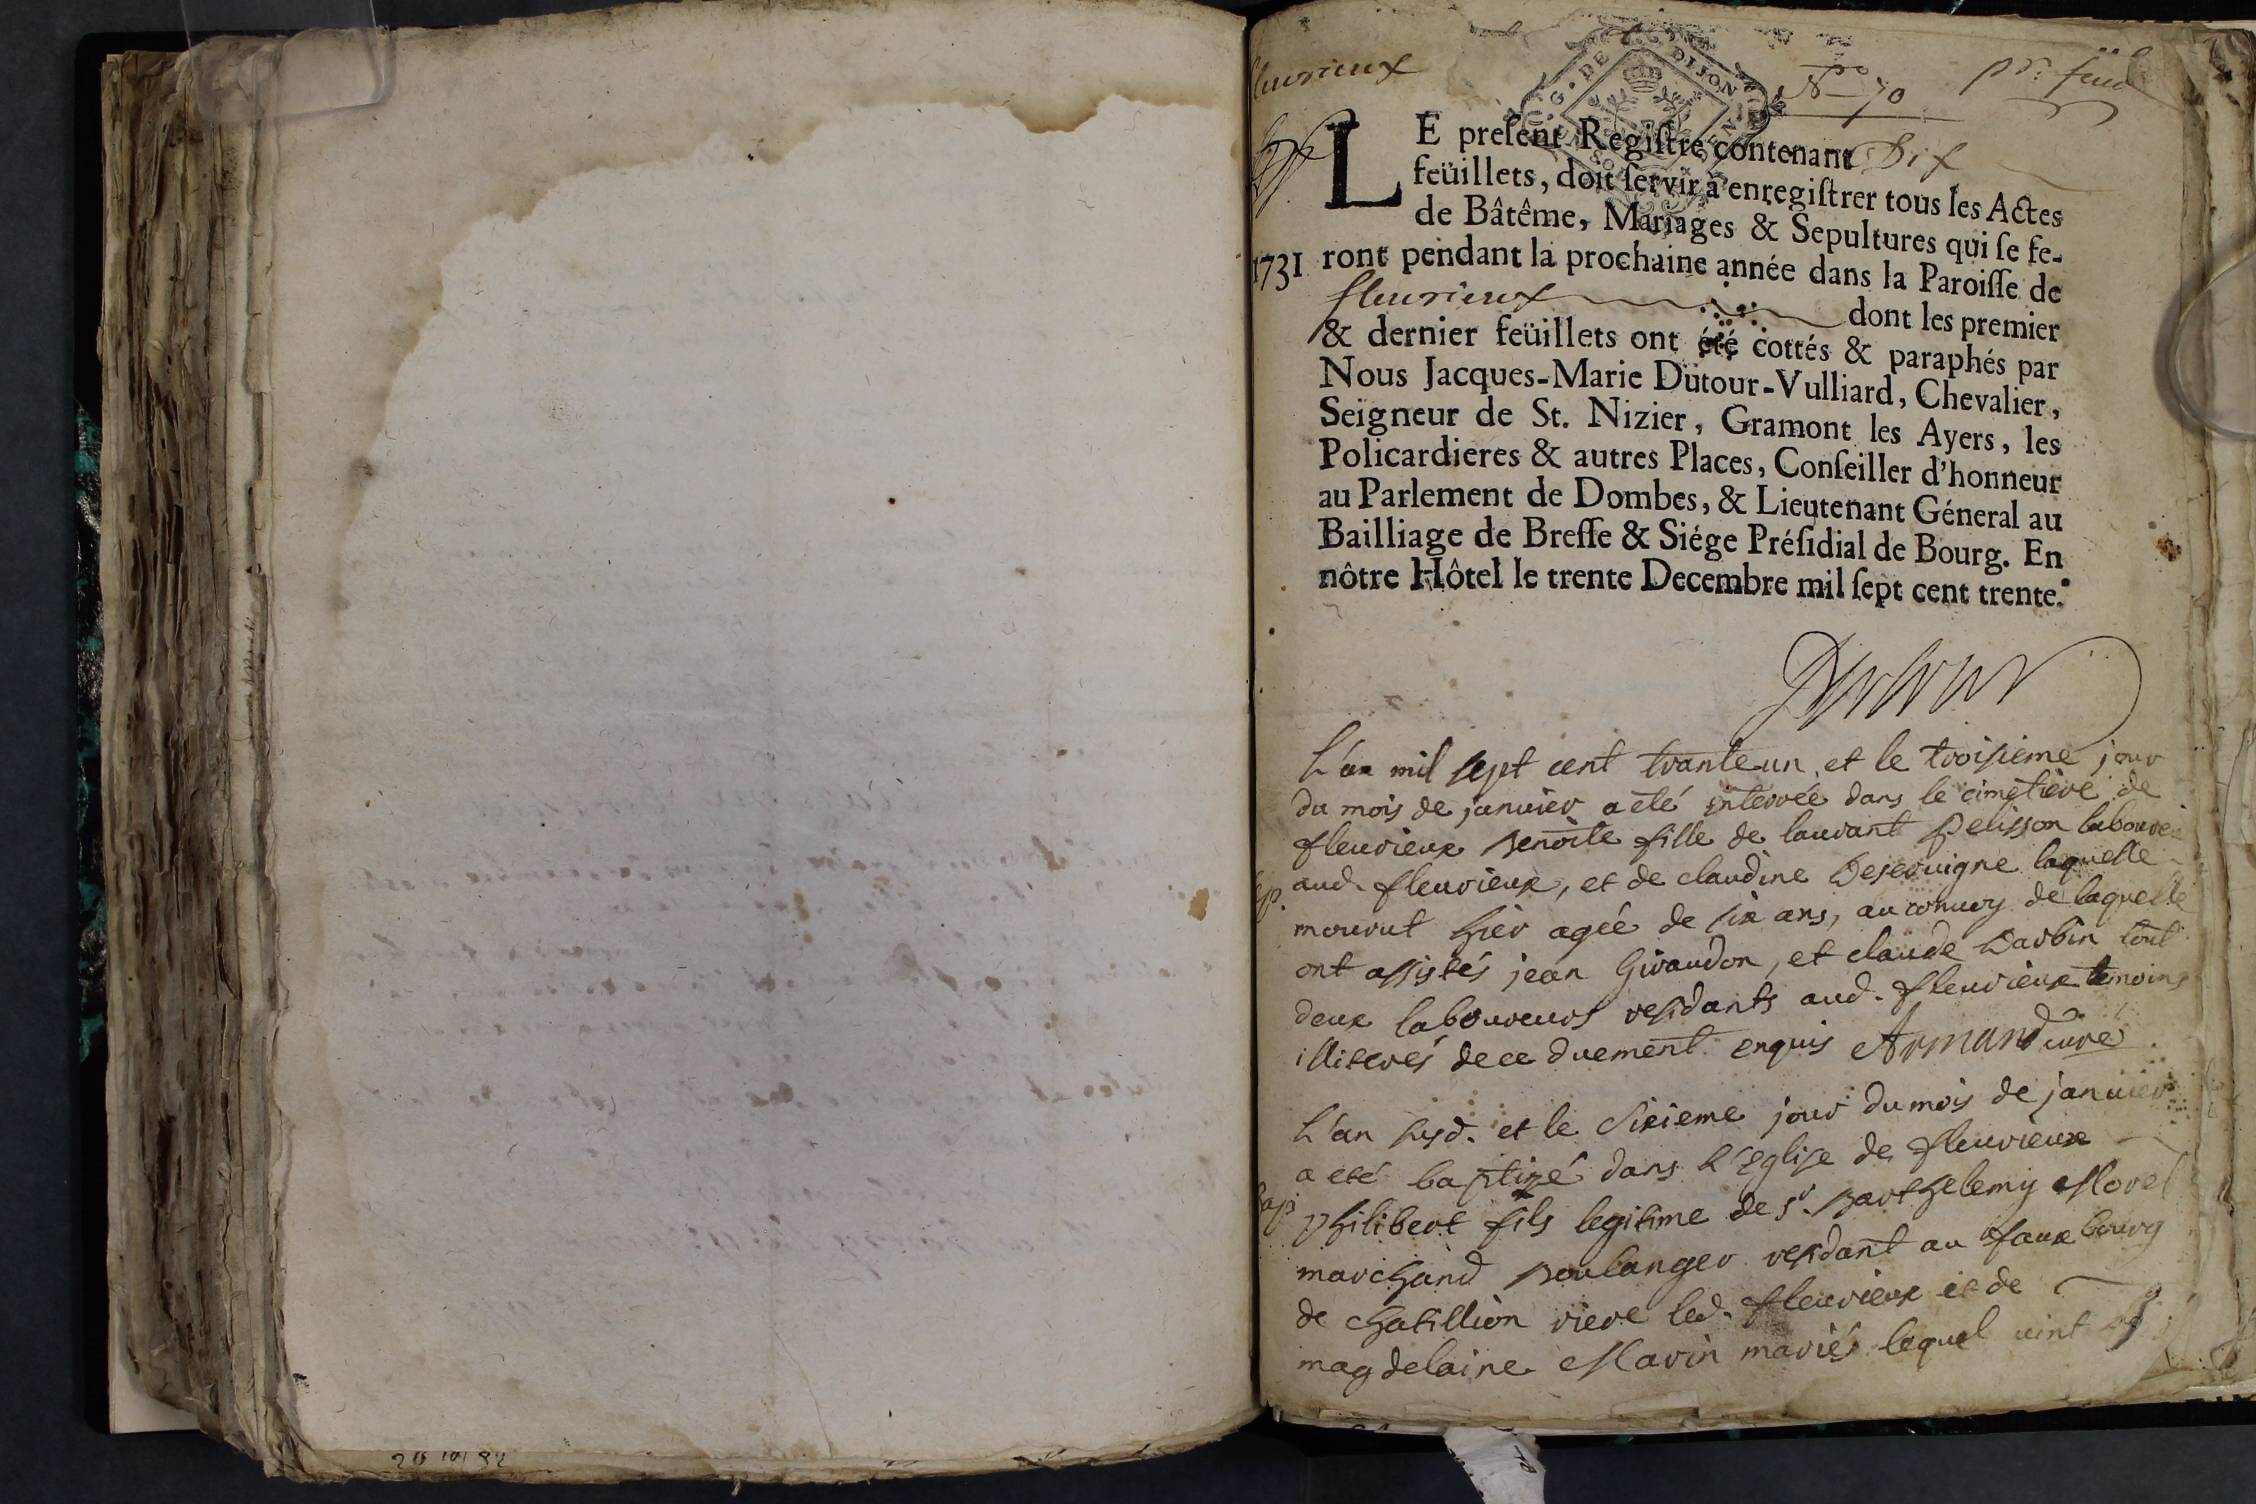 fleurieux
G. DE DIJON
N° 70
pr. feuil
LE preſent Regiſtre contenant Dix
feüillets, doit ſervir à enregiſtrer tous les Actes
de Bâtême, Mariages & Sepultures qui ſe fe-
1731 ront pendant la prochaine année dans la Paroiſſe de
fleurieux dont les premier
& dernier feüillets ont été cottés & paraphés par
Nous Jacques-Marie Dutour-Vulliard, Chevalier,
Seigneur de St. Nizier, Gramont les Ayers, les
Policardieres & autres Places, Conſeiller d'honneur
au Parlement de Dombes, & Lieutenant Géneral au
Bailliage de Breſſe & Siége Préſidial de Bourg. En
nôtre Hôtel le trente Decembre mil ſept cent trente.
Dutour
L'an mil sept cent trante un et le troisieme jour
du mois de janvier a eté enterrée dans le cimetiere de
fleurieux Benoite fille de laurant Pelisson laboureur
Sep. aud. fleurieux, et de claudine Deservigne laquelle
mourut hier agée de six ans, au convoy de laquelle
ont assistés jean Giraudon, et claude Barbin tout
deux laboureurs residants aud. fleurieux temoins
illiterés de ce duement enquis Armand curé
L'an susd. et le sixieme jour du mois de janvier
a eté baptizé dans l'Eglise de fleurieux
Bap. philibert fils legitime de sr. Barthelemy Morel
marchand Boulanger residant au faux bourg
de chatillion riere led. fleurieux et de
magdelaine Marin mariés lequel vint